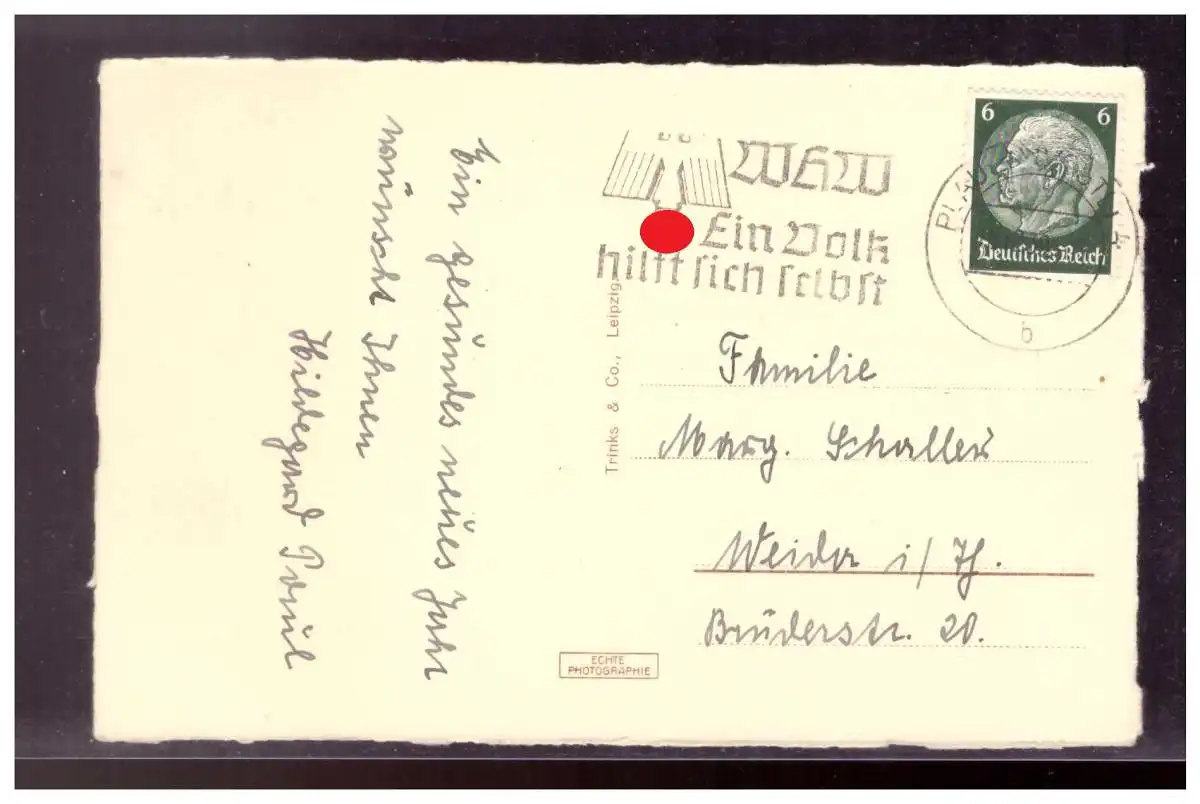 Ein gesundes neues Jahr
wünscht Ihnen
Hildegard Paul
WHW
Ein Volk
hilft sich selbst
6 6
Deutsches Reich
b
Trinks & Co., Leipzig
Familie
Marg. Schaller
Weida i/Th.
Brüderstr. 20.
ECHTE
PHOTOGRAPHIE